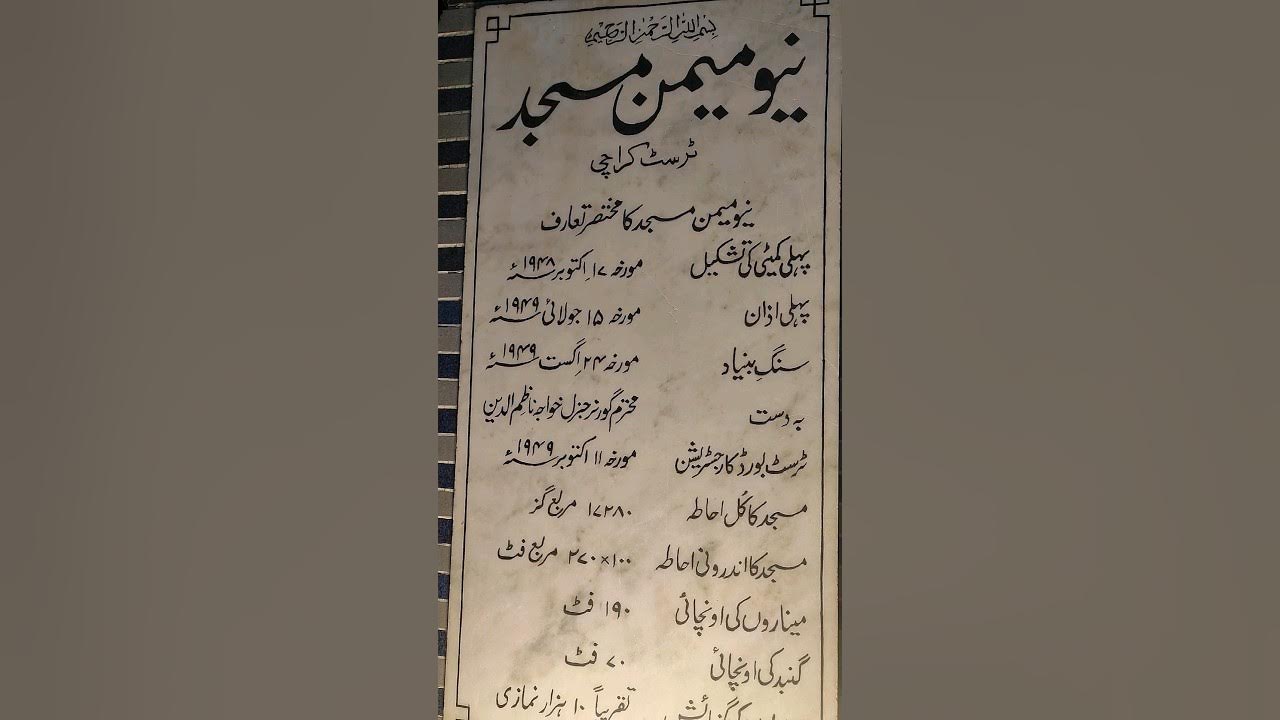 بسم اللہ الرحمن الرحیم
نیو میمن مسجد
ٹرسٹ کراچی
نیو میمن مسجد کا مختصر تعارف
پہلی کمیٹی کی تشکیل مورخہ ۱۷ اکتوبر ۱۹۴۸ء
پہلی اذان مورخہ ۱۵ جولائی ۱۹۴۹ء
سنگِ بنیاد مورخہ ۲۴ اگست ۱۹۴۹ء
بہ دست محترم گورنر جنرل خواجہ ناظم الدین
ٹرسٹ بورڈ کا رجسٹریشن مورخہ ۱۱ اکتوبر ۱۹۴۹ء
مسجد کا کُل احاطہ ۱۷۲۸۰ مربع گز
مسجد کا اندرونی احاطہ ۲۷۰×۱۰۰ مربع فٹ
میناروں کی اونچائی ۱۹۰ فٹ
گنبد کی اونچائی ۷۰ فٹ
کی گنجائش تقریباً ۱۰ ہزار نمازی